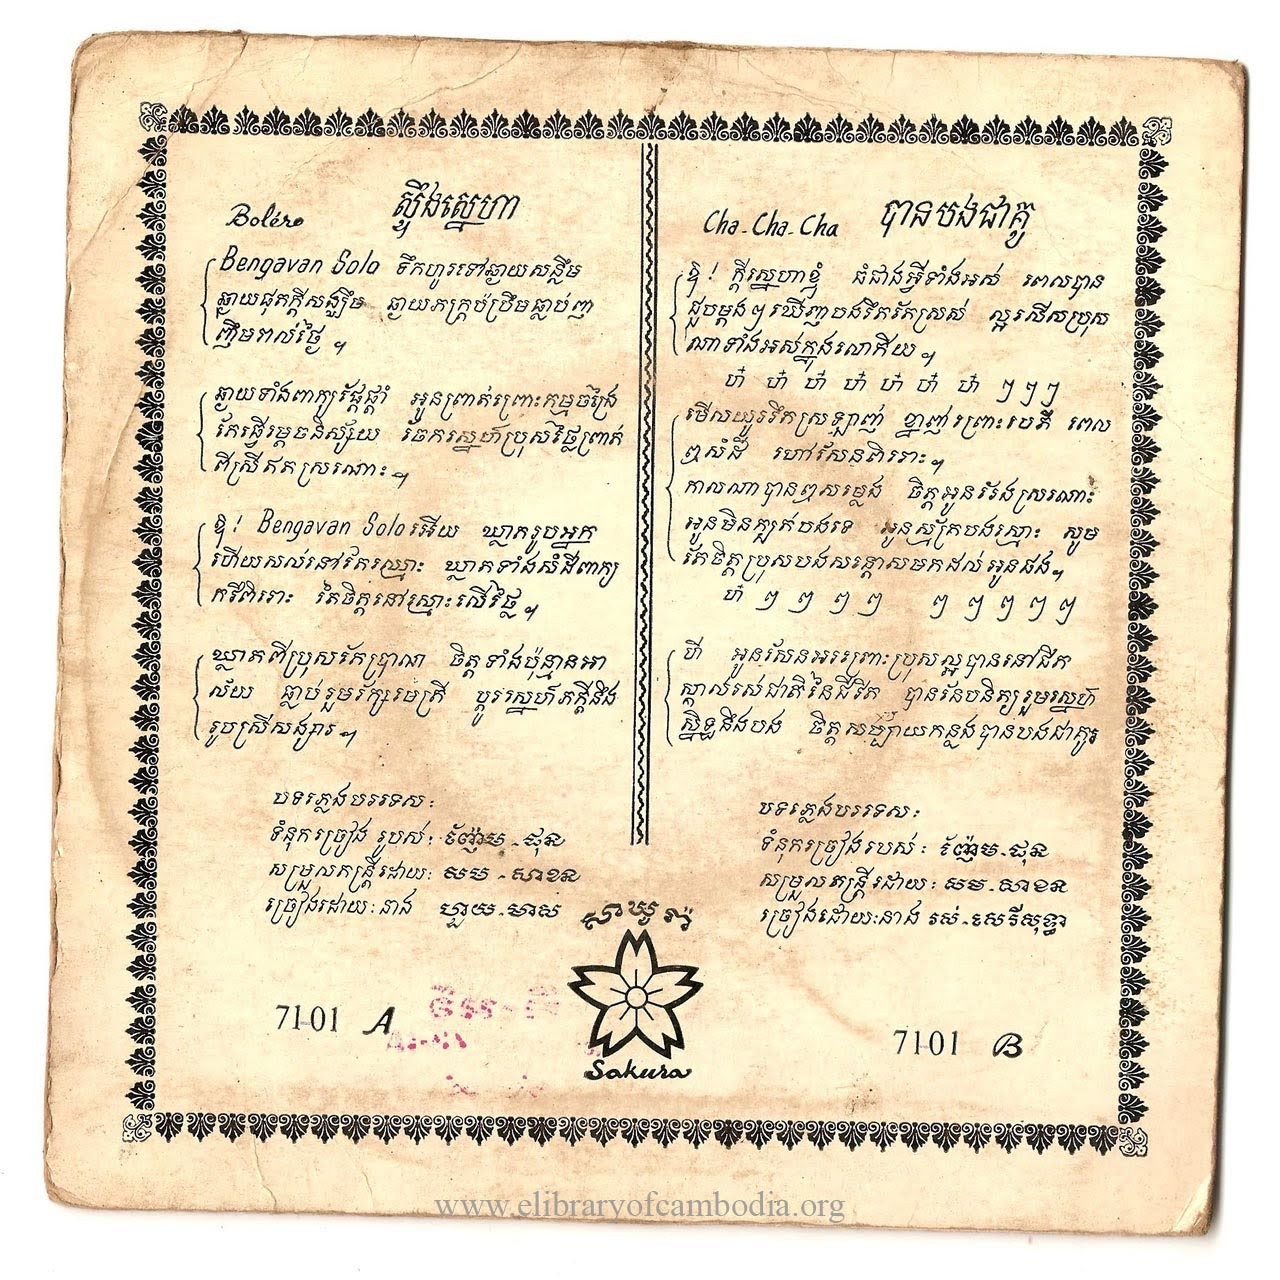 Boléro ស្ទឹងស្នេហា
Bengavan Solo ទឹកហូរទៅឆ្ងាយសន្លឹម
ឆ្ងាយផុតក្ដីសង្ឃឹម ឆ្ងាយភក្ត្រប់ប្រឹមធ្លាប់ញ
ញឹមរាល់ថ្ងៃ ។
ឆ្ងាយទាំងពាក្យផ្ដែផ្ដាំ អូនព្រាត់ព្រោះកម្មចង្រៃ
តែធ្វើម្ដេចនិស្ស័យ ចែករស្នេហ៍ប្រុសថ្លៃព្រាត់
ពីស្រីឥតស្រណោះ ។
ឱ ! Bengavan Solo អើយ ឃ្លាតរូបអ្នក
ហើយសល់នៅតែឈ្មោះ ឃ្លាតទាំងសំដីពាក្យ
កវីពិរោះ តែចិត្តនៅស្មោះលើថ្លៃ ។
ឃ្លាតពីប្រុសតែប្រាណ ចិត្តទាំងប៉ុន្មានអា
ល័យ ធ្លាប់រួមរ័ក្សមេត្រី ប្ដូរស្នេហ៍ភក្ដីនឹង
រូបស្រីសង្សារ ។
បទភ្លេងបរទេស :
ទំនុកច្រៀង របស់ : ញ៉ែម - ជុន
សម្រួលតន្ត្រីដោយ : សម - សាខន
ច្រៀងដោយ : នាង ហួយ - មាស
71-01 A
Cha-Cha-Cha បានបងជាគូ
ឱ ! ក្ដីស្នេហាខ្ញុំ ធំជាងអ្វីទាំងអស់ ពេលបាន
ជួបម្ដងៗ ឃើញបងរឹតតែស្រស់ ល្អលើសប្រុស
ណាទាំងអស់ក្នុងលោកីយ ។
ហ៎ ហ៎ ហ៎ ហ៎ ហ៎ ហ៎ ហ៎ ៗ ៗ ៗ
មើលយូររឹតស្រឡាញ់ ខ្នាញ់ព្រោះបេតី ពេល
ឮសំដី ហៅសែនពិរោះ ។
កាលណាបានឮសម្លេង ចិត្តអូនរែងស្រណោះ
អូនមិនក្បត់បងទេ អូនស្ម័គ្របងស្មោះ សូម
តែចិត្តប្រុសបងសន្ដោសមកដល់អូនផង ។
ហ៎ ៗ ៗ ៗ ៗ ៗ ៗ ៗ ៗ ៗ
ហឺ អូនសែនអរព្រោះប្រុសល្អបាននៅជិត
ស្គាល់រសជាតិនៃជីវិត បាននែបនិត្យរួមស្នេហ៍
ស្និទ្ធនឹងបង ចិត្តសប្បាយកន្លងបានបងជាគូរ
បទភ្លេងបរទេស :
ទំនុកច្រៀងរបស់ : ញ៉ែម - ជុន
សម្រួលតន្ត្រីដោយ : សម - សាខន
ច្រៀងដោយ : នាង រស់ - សេរីសុទ្ធា
71-01 B
សាឃូរ៉ា
Sakura
www.elibraryofcambodia.org